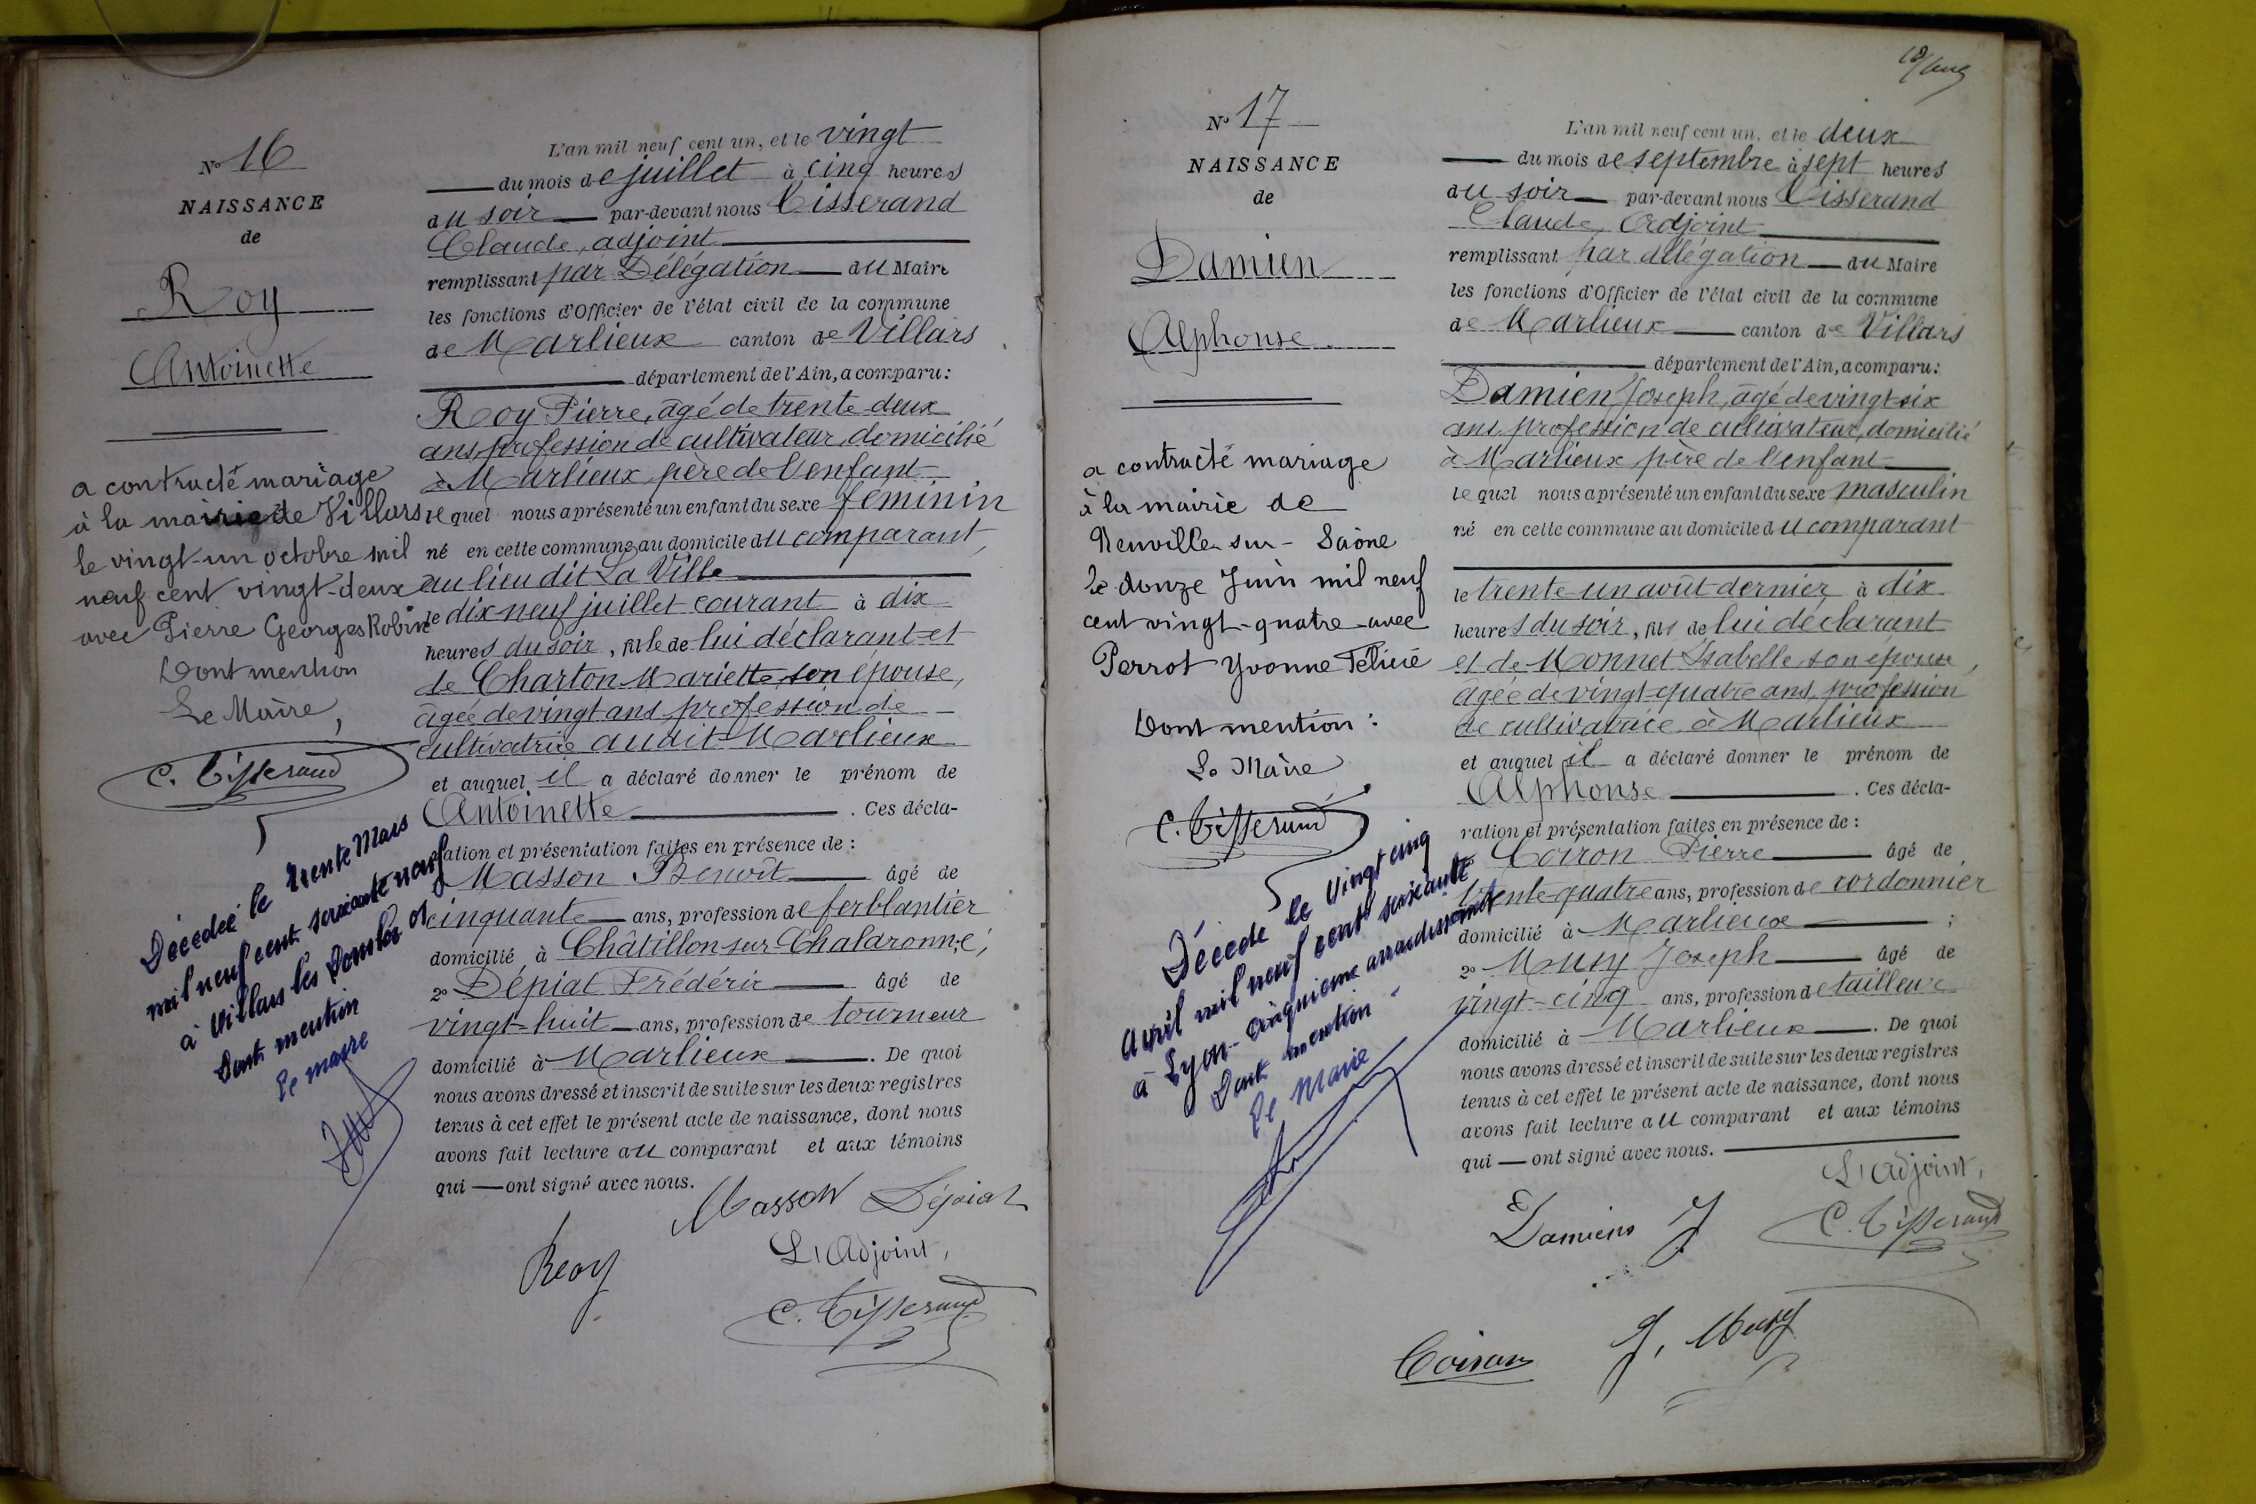 No 16
NAISSANCE
de
Roy
Antoinette
a contracté mariage
à la mairie de Villars
le vingt-un octobre mil
neuf cent vingt-deux
avec Pierre Georges Robin
Dont mention
Le Maire,
C. Tisserand
Décédée le trente Mars
mil neuf cent soixante neuf
à Villars les Dombes 01
Dont mention
Le maire
L'an mil neuf cent un, et le vingt
du mois de juillet à cinq heures
du soir par-devant nous Tisserand
Claude, adjoint
remplissant par Délégation du Maire
les fonctions d'Officier de l'état civil de la commune
de Marlieux canton de Villars
département de l'Ain, a comparu:
Roy Pierre, âgé de trente-deux
ans, profession de cultivateur, domicilié
à Marlieux père de l'enfant
lequel nous a présenté un enfant du sexe féminin
né en cette commune au domicile du comparant,
au lieu dit La Ville
le dix-neuf juillet courant à dix
heures du soir, fille de lui déclarant et
de Charton Mariette son épouse,
âgée de vingt ans, profession de
cultivatrice audit Marlieux
et auquel il a déclaré donner le prénom de
Antoinette . Ces décla-
ration et présentation faites en présence de :
Masson Benoît âgé de
cinquante ans, profession de ferblantier
domicilié à Châtillon sur Chalaronne;
2o Dépiat Frédéric âgé de
vingt-huit ans, profession de tourneur
domicilié à Marlieux . De quoi
nous avons dressé et inscrit de suite sur les deux registres
tenus à cet effet le présent acte de naissance, dont nous
avons fait lecture au comparant et aux témoins
qui ont signé avec nous.
Masson Dépiat
Roy
L'Adjoint,
C. Tisserand
No 17
NAISSANCE
de
Damien
Alphonse
a contracté mariage
à la mairie de
Neuville-sur-Saône
le douze Juin mil neuf
cent vingt-quatre avec
Perrot Yvonne Félicie
Dont mention :
Le Maire
C. Tisserand
Décédé le vingt cinq
avril mil neuf cent soixante
à Lyon - cinquième arrondissement
Dont mention
Le Maire
L'an mil neuf cent un, et le deux
du mois de septembre à sept heures
du soir par-devant nous Tisserand
Claude, Adjoint
remplissant par délégation du Maire
les fonctions d'Officier de l'état civil de la commune
de Marlieux canton de Villars
département de l'Ain, a comparu:
Damien Joseph, âgé de vingt-six
ans, profession de cultivateur, domicilié
à Marlieux père de l'enfant
lequel nous a présenté un enfant du sexe masculin
né en cette commune au domicile du comparant
le trente-un août dernier, à dix
heures du soir, fils de lui déclarant
et de Monnet Isabelle son épouse,
âgée de vingt-quatre ans, profession
de cultivatrice à Marlieux
et auquel il a déclaré donner le prénom de
Alphonse . Ces décla-
ration et présentation faites en présence de :
Coiron Pierre âgé de
trente-quatre ans, profession de cordonnier
domicilié à Marlieux ;
2o Muzy Joseph âgé de
vingt-cinq ans, profession de tailleur
domicilié à Marlieux . De quoi
nous avons dressé et inscrit de suite sur les deux registres
tenus à cet effet le présent acte de naissance, dont nous
avons fait lecture au comparant et aux témoins
qui ont signé avec nous.
L'Adjoint,
Damiens J
C. Tisserand
Coiron
J. Muzy